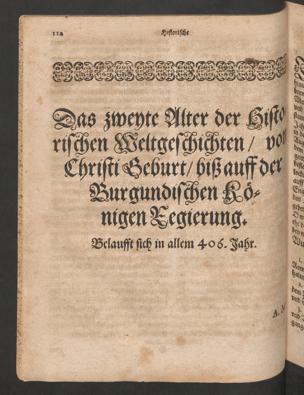 112 Historische
Das zweyte Alter der Histo
rischen Weltgeschichten / von
Christi Geburt / biß auff der
Burgundischen Kö-
nigen Regierung.
Belaufft sich in allem 406. Jahr.